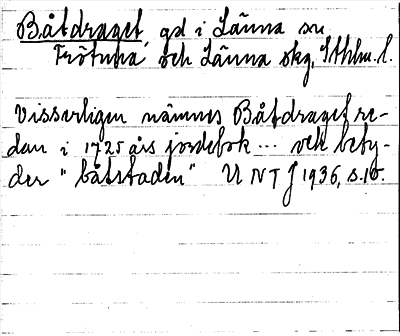 Båtdraget, gd i Länna sn
Frötuna och Länna skg, Sthlm. l.
Visserligen nämnes Båtdraget re-
dan i 1725 års jordebok ... och bety-
der "båtstaden" UNTJ 1936, s. 10.